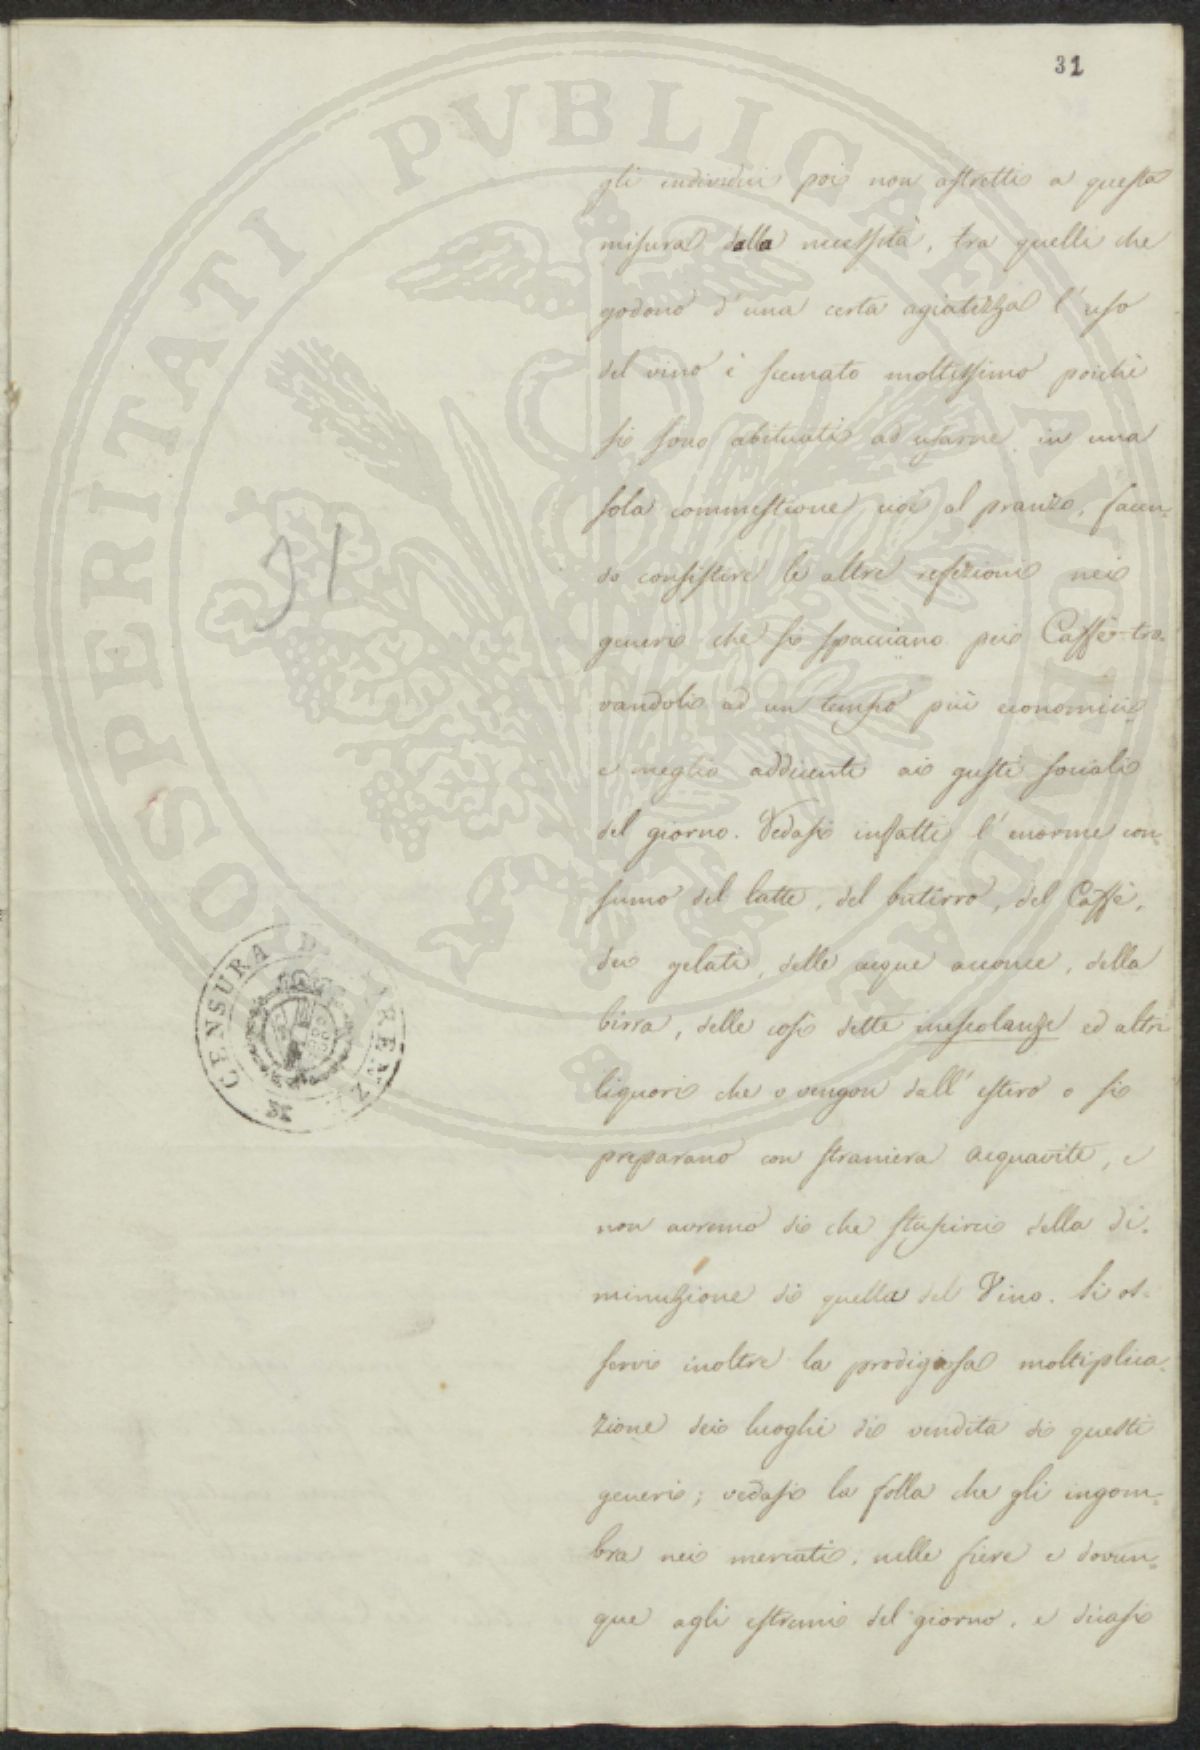 31
gli individui poi non astretti a questa
misura dalla necessità, tra quelli che
godono d'una certa agiatezza l'uso
del vino è scemato moltissimo poichè
si sono abituati ad usarne in una
sola commestione cioè al pranzo, facen-
do consistere le altre refezioni nei
generi che si spacciano pei Caffè tro-
vandoli ad un tempo più economici
e meglio addicenti ai gusti sociali
del giorno. Vedasi infatti l'enorme con-
sumo del latte, del butirro, del Caffè,
dei gelati, delle acque acconce, della
birra, delle così dette mescolanze ed altri
liquori che o vengon dall'estero o si
preparano con straniera acquavite, e
non avremo di che stupirci della di-
minuzione di quella del Vino. Si os-
servi inoltre la prodigiosa moltiplica-
zione dei luoghi di vendita di questi
generi; vedasi la folla che gli ingom-
bra nei mercati, nelle fiere e dovun-
que agli estremi del giorno, e dicasi
31
CENSURA DI FIRENZE
PROSPERITATI PVBLICAE AVGENDAE